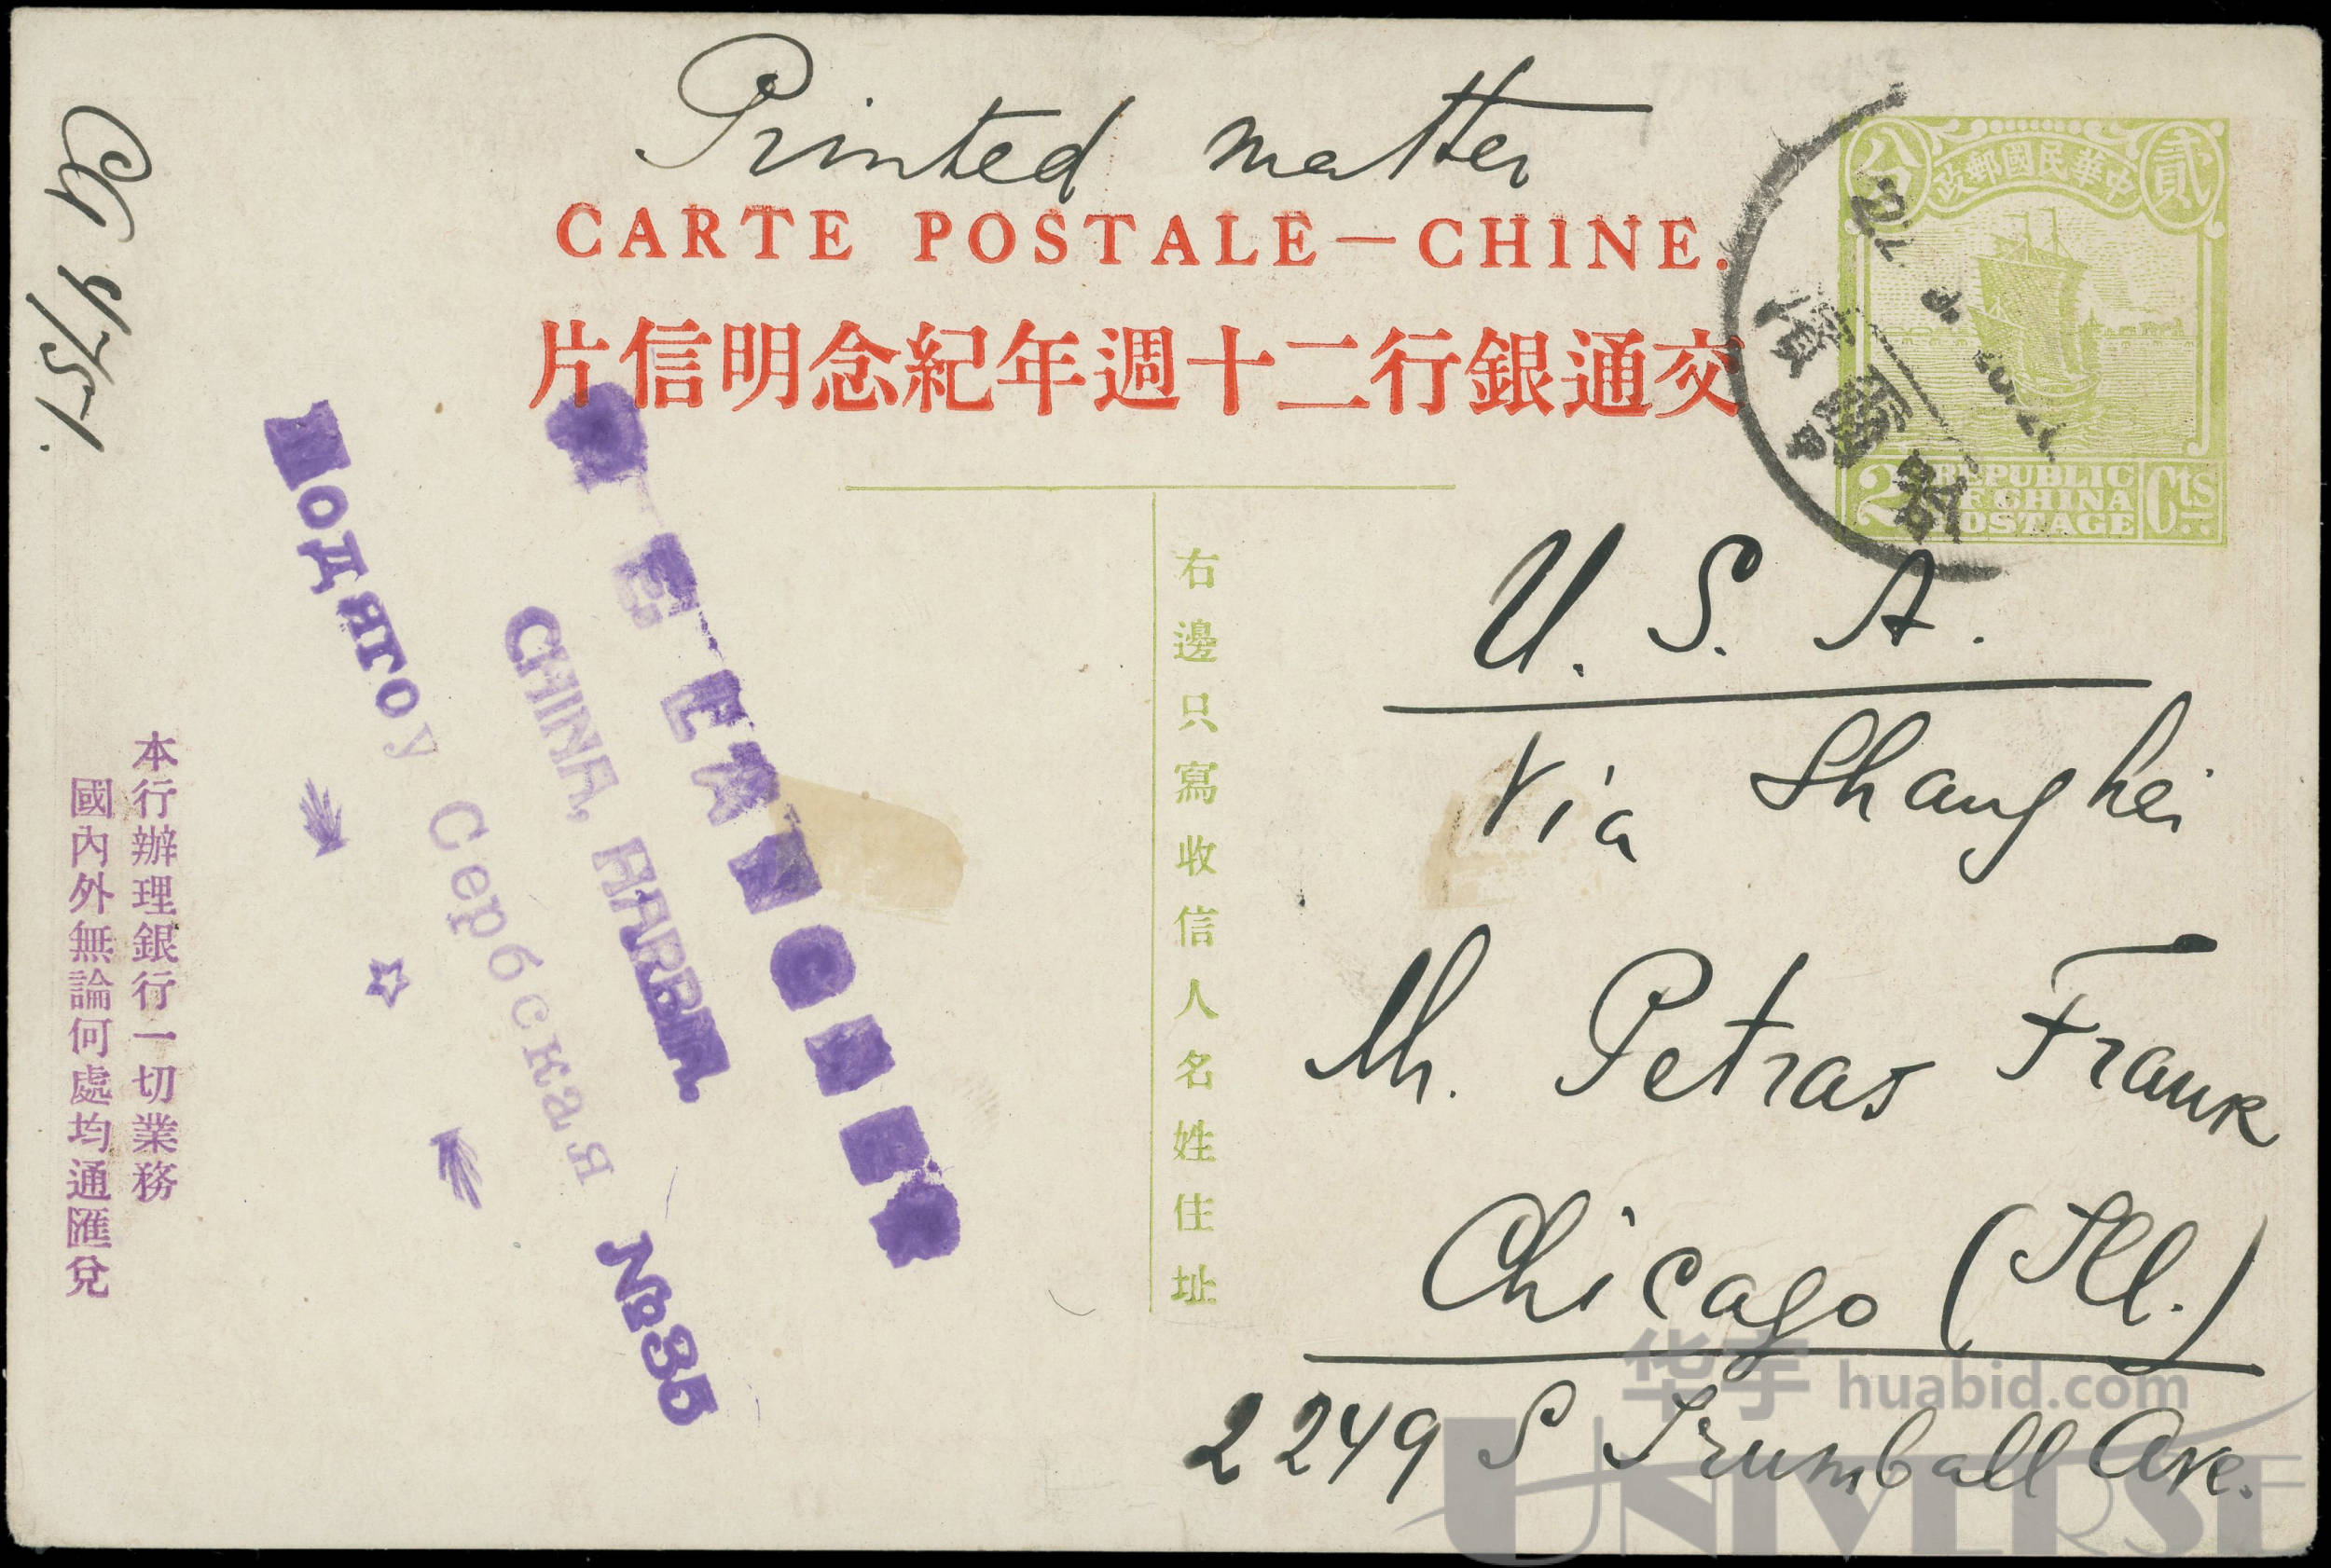 Printed matter
CARTE POSTALE—CHINE.
片信明念紀年週十二行銀通交
政郵國民華中
分
貳
2
REPUBLIC
OF CHINA
POSTAGE
Cts
濱爾哈
U. S. A.
Via Shanghei
Mr. Petras Frank
Chicago (Ill.)
2249 S Trumball Ave.
右邊只寫收信人名姓住址
CHINA, HARBIN.
Модягоу Сербская №35
本行辦理銀行一切業務
國內外無論何處均通匯兌
华宇 huabid.com
UNIVERSE